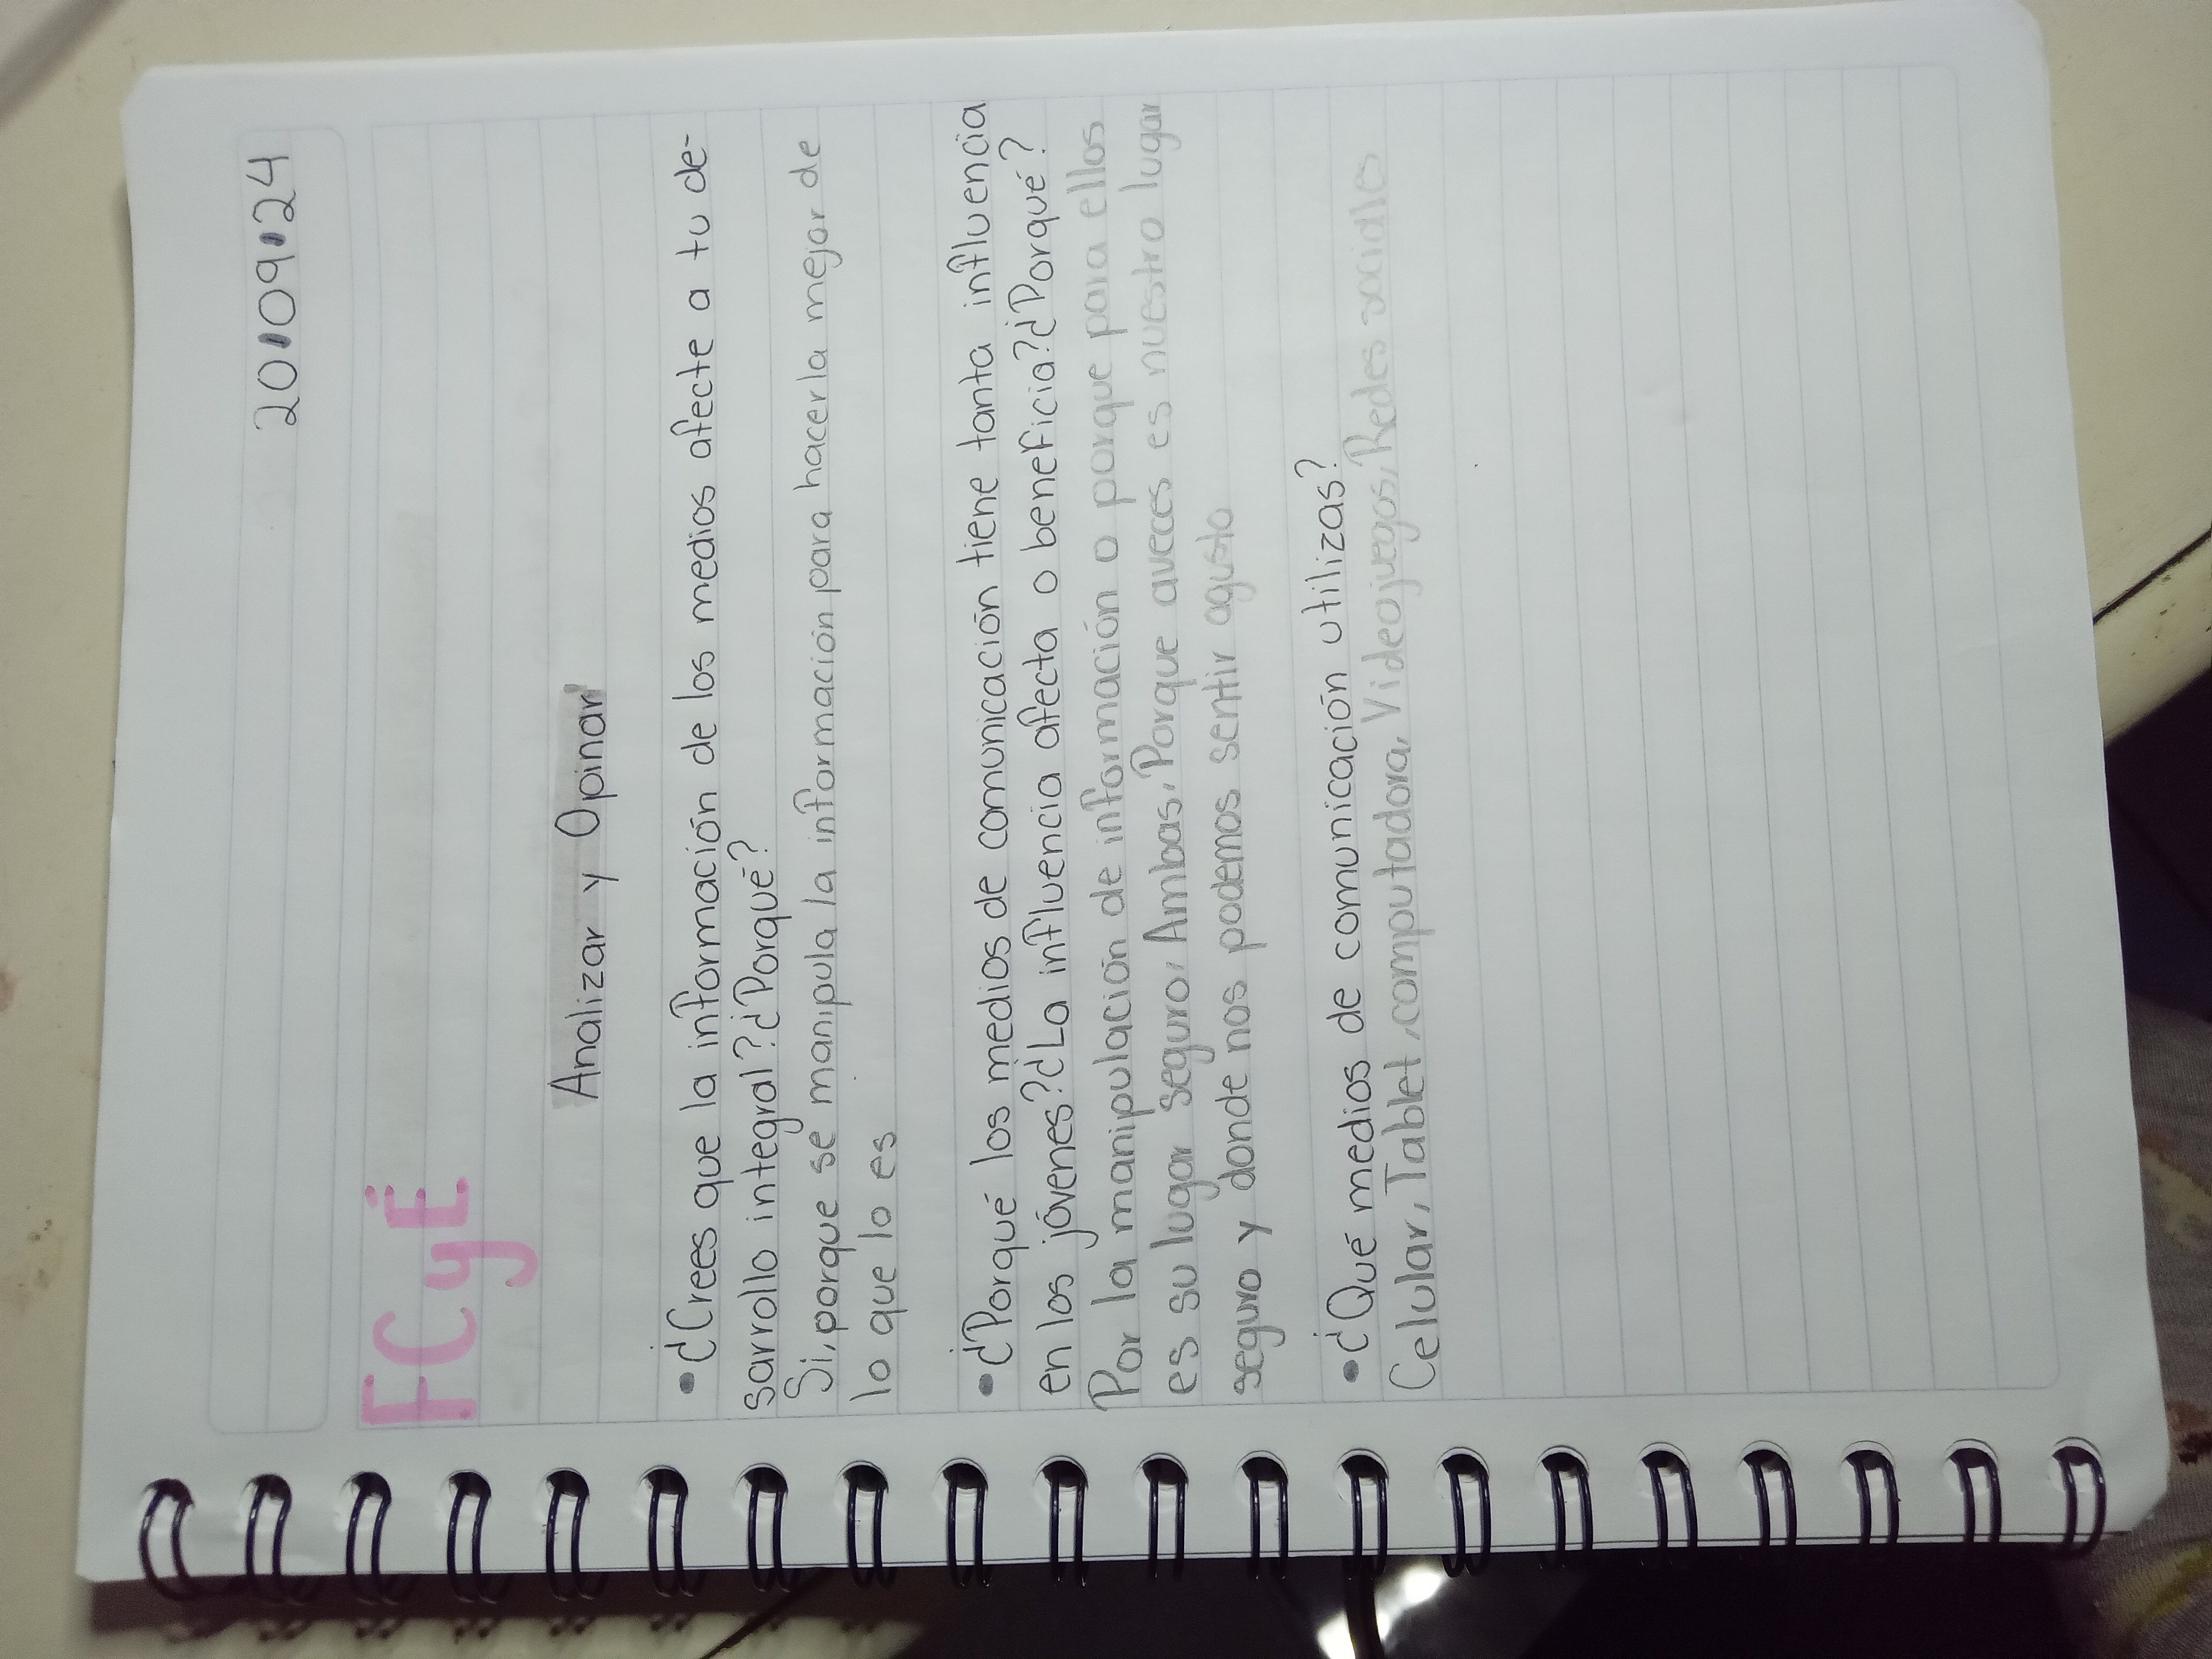 20•09•24
FCyE
Analizar y Opinar
•¿Crees que la información de los medios afecte a tu de-
sarrollo integral?¿Porqué?
Si, porque se manipula la información para hacerla mejor de
lo que lo es
•¿Porqué los medios de comunicación tiene tanta influencia
en los jóvenes?¿La influencia afecta o beneficia?¿Porqué?
Por la manipulación de información o porque para ellos
es su lugar seguro, Ambas, Porque aveces es nuestro lugar
seguro y donde nos podemos sentir agusto
•¿Qué medios de comunicación utilizas?
Celular, Tablet, computadora, Videojuegos, Redes sociales